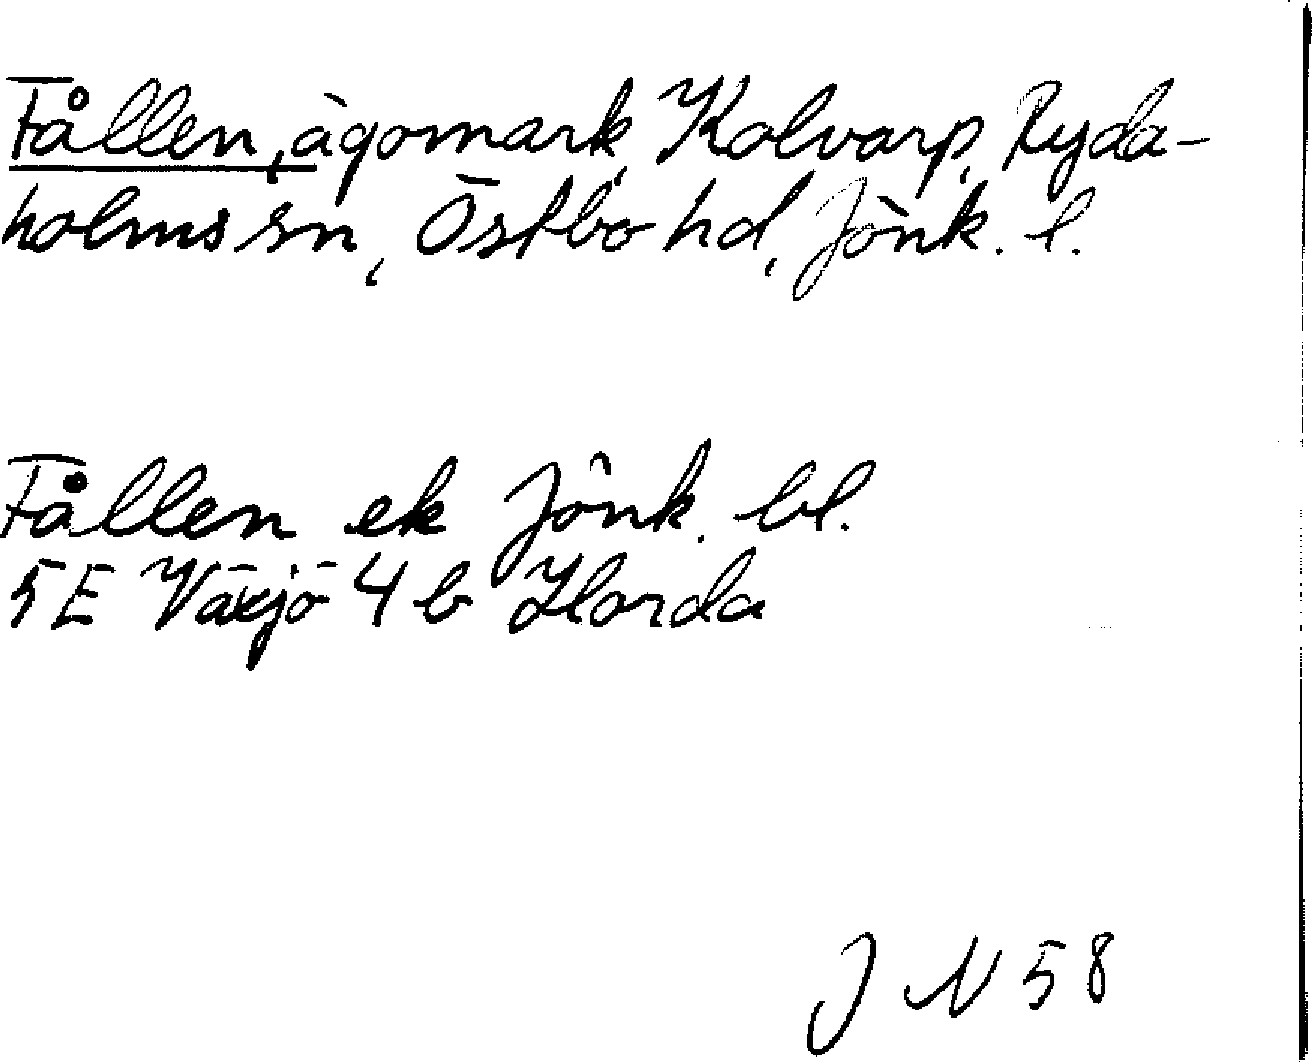 Fållen, ägomark, Kolvarp, Ryda-
holms sn, Östbo hd, Jönk. l.
Fållen ek Jönk. bl.
5E Växjö 4 b Horda
J N 58